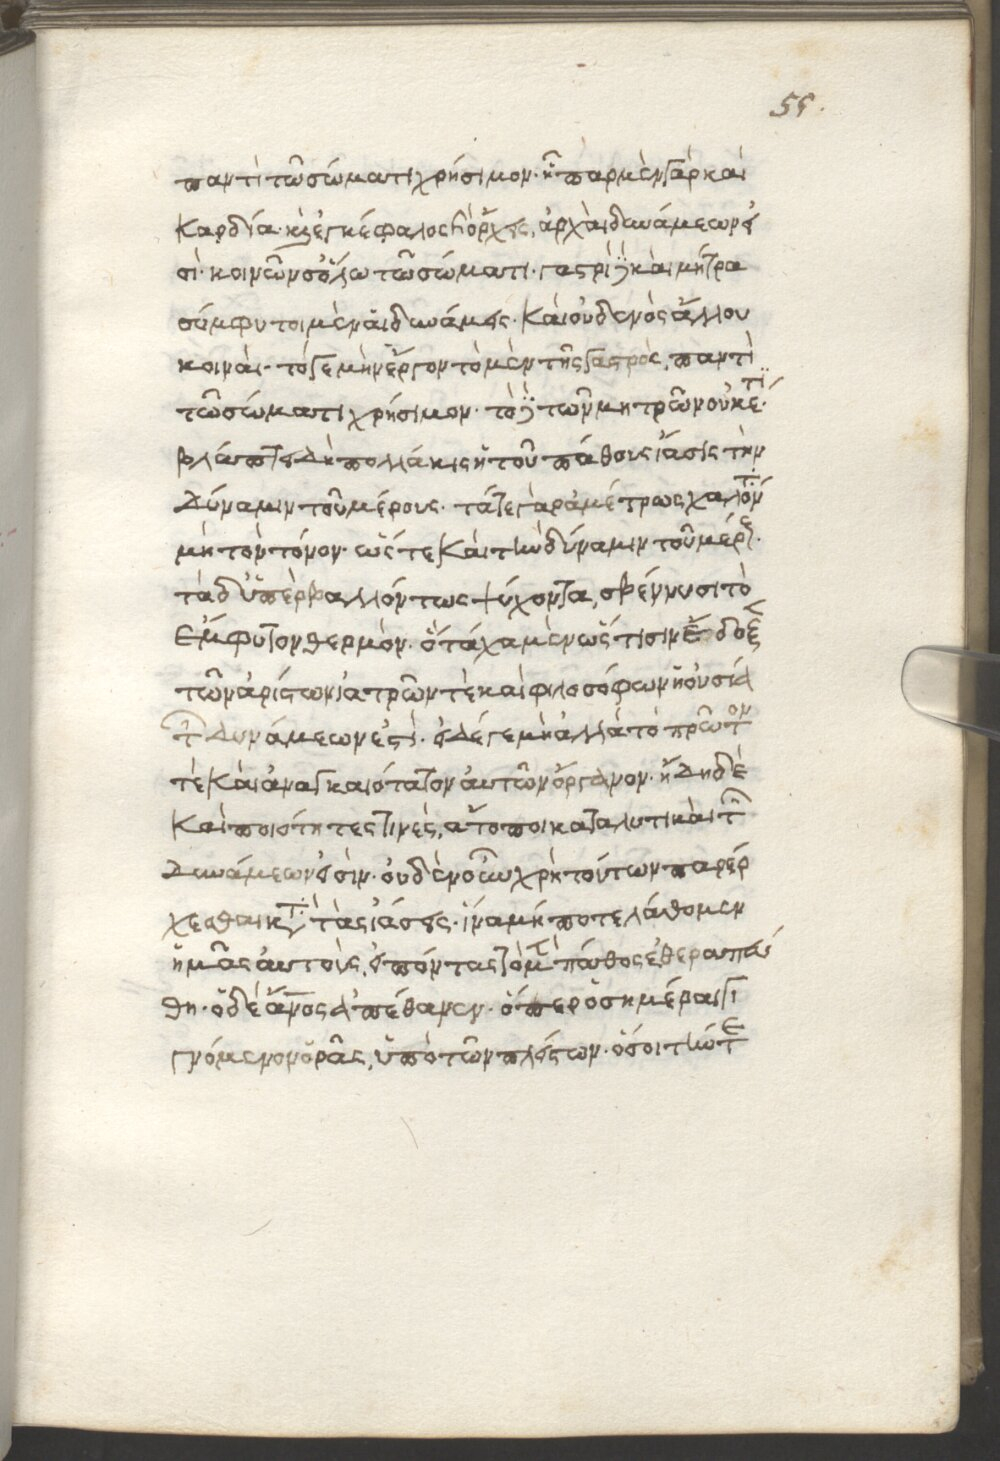 55.
παντὶ τῶ σώματι χρήσιμον· ἧπαρ μὲν γὰρ καὶ
καρδία· κὶ ἐγκέφαλος κὶ ὄρχεις, ἀρχὰι δυνάμεων εἰ
σὶ· κοινῶν ὅλω τῶ σώματι· γαστὴρ δὲ κὰι μήτρα
σύμφυτοι μὲν ἁι δυνάμεις· Κὰι ὀυδενὸς ἄλλου
κοιναὶ· τό γε μὴν ἔργον τὸ μὲν τῆς γαστρὸς, παντὶ
τῶ σώματι χρήσιμον· τὸ δὲ τῶν μητρῶν οὐκέτι·
βλάπτει δὴ πολλάκις ἡ τοῦ πάθους ἴασις τὴν
δύναμιν τοῦ μέρους· τά τε γὰρ ἀμέτρως χαλῶντα
μὴ τὸν τόνον· ὥς τε Κὰι τὴν δύναμιν τοῦ μέρους·
τὰ δ' ὑπερβαλλόντως ψύχοντα, σβέννυσι τὸ
ἔμφυτον θερμόν· ὃ τάχα μὲν ὥς τισιν ἔδοξε
τῶν ἀρίστων ἰατρῶν τὲ καὶ φιλοσόφων ἡ ὀυσία
τῶν δυνάμεων ἐστὶ· εἰ δέ γε μὴ ἀλλὰ τὸ πρῶτον
τὲ Κὰι ἀναγκαιότατον ἀυτῶν ὄργανον· ἤδη δὲ
Καὶ ποιότητες τινὲς, ἄτοποι καταλυτικὰι τῶν
δυνάμεων εἰσὶν· ὀυδὲν ὀῦν χρὴ τούτων παρέρ
χεσθαι κατὰ τὰς ἰάσεις· ἵνα μή ποτε λάθομεν
ἡμᾶς ἀυτοὺς, εἰπόντας τὸ μὲν πάθος ἐθεραπεύ
θη· ὁ δὲ ἄνος ἀπέθανεν· ὅπερ ὁσημέραι γι
γνόμενον ὁρᾶς, ὑπὸ τῶν πλείστων· ὅσοι τὴν τε